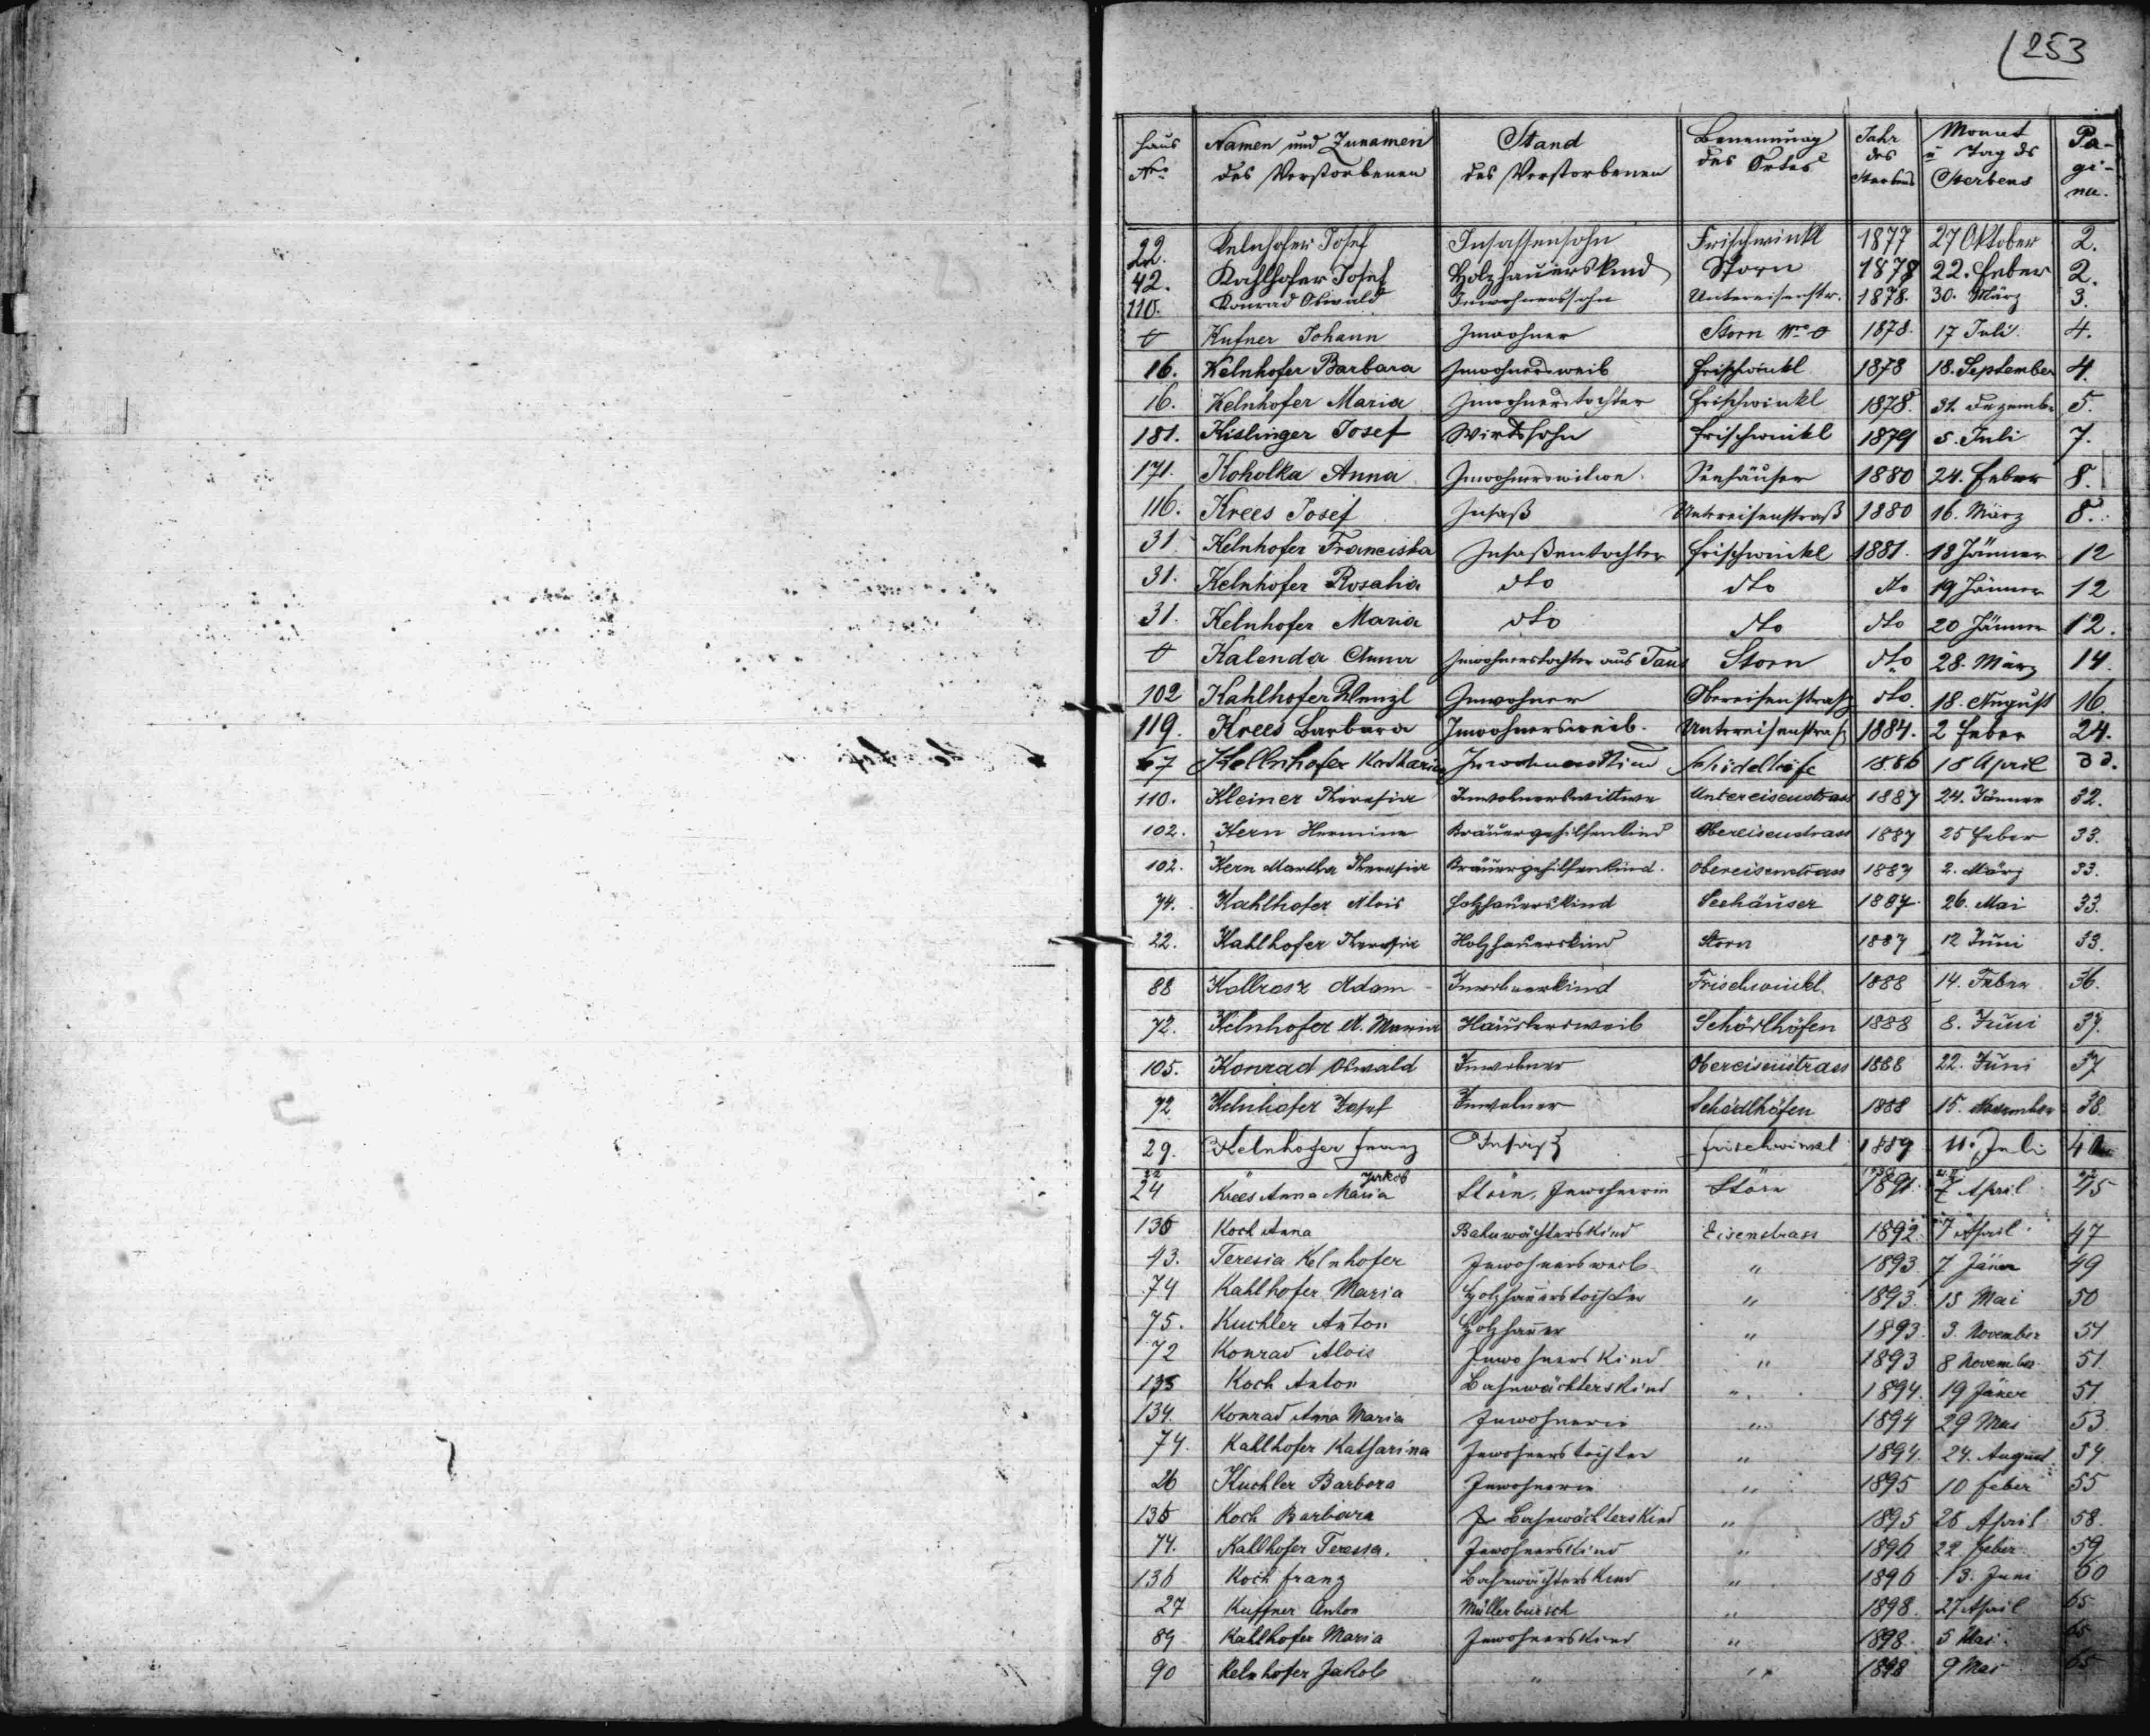 253
Haus Nro Namen und Zunamen des Verstorbenen Stand des Verstorbenen Benennung des Ortes Jahr des Sterbens Monat u Tag ds Sterbens Pa-gi-na.
22. Kelnhofer Josef Insassensohn Frischwinkl 1877 27 Oktober 2.
42. Kahlhofer Josef Holzhauerskind Storn 1878 22. Feber 2.
110. Konrad Oswald Inwohnerssohn Untereisenstr. 1878. 30. März 3.
0 Kufner Johann Inwohner Storn Nro 0 1878. 17 Juli 4.
16. Kelnhofer Barbara Inwohnersweib Frischwinkl 1878 18. September 4.
16. Kelnhofer Maria Inwohnerstochter Frischwinkl 1878. 31. Dezemb. 5.
181. Kislinger Josef Wirtssohn Frischwinkl 1879 5. Juli 7.
171. Koholka Anna Inwohnerswitwe Seehäuser 1880 24. Feber 8.
116. Krees Josef Insaß Untereisenstraß 1880 16. März 8.
31 Kelnhofer Franciska Insaßentochter Frischwinkl 1881. 18 Jänner 12
31. Kelnhofer Rosalia dto dto dto 19 Jänner 12
31. Kelnhofer Maria dto dto dto 20 Jänner 12.
0 Kalenda Anna Inwohnerstochter aus Taus Storn dto 28. März 14.
102 Kahlhofer Wenzl Inwohner Obereisenstraß dto. 18. August 16.
119. Krees Barbara Inwohnersweib. Untereisenstraß 1884. 2 Feber 24.
67 Kellnhofer Katharina Inwohnerskind 1886 18 April
110. Kleiner Theresia Inwohnerswittwe Untereisenstrass 1887 24. Jänner 32.
102. Kern Hermine Bräuergehilfenkind Obereisenstrass 1887 25 Feber 33.
102. Kern Martha Theresia Bräuergehilfenkind. Obereisenstrass 1887 2. März 33.
74. Kahlhofer Alois Holzhauerskind Seehäuser 1887. 26. Mai 33.
22. Kahlhofer Theresia Holzhauerskind Storn 1887 12 Juni 33.
88 Kollrosz Adam Inwohnerkind Frischwinkl. 1888 14. Feber 36.
72. Kelnhofer A. Maria Häuslersweib Schödlhöfen 1888 8. Juni 37.
105. Konrad Oswald Inwohner Obereisenstrass 1888 22. Juni 37
72 Kelnhofer Josef Inwohner Schödlhöfen 1888 15. November 38.
29. Kelnhofer Franz Insaß Frischwinkl 1889 11. Juli
24 Krees Anna Maria Jakob Störn, Inwohnerin Störn 1891. 7 April 45
136 Koch Anna Bahnwächterskind Eisenstrass 1892 7 April 47
43. Teresia Kelnhofer Inwohnersweib " 1893. 7 Jäner 49
74 Kahlhofer Maria Holzhauerstochter " 1893. 15 Mai 50
75. Kuchler Anton Holzhauer " 1893. 3. November 51
72 Konrad Alois Inwohnerskind " 1893 8 November 51.
135 Koch Anton Bahnwächterskind " 1894. 19 Jäner 51
134. Konrad Anna Maria Inwohnerin " 1894 29 Mai 53.
74. Kahlhofer Katharina Inwohnerstochter " 1894. 24. August 54.
26 Kuchler Barbora Inwohnerin " 1895 10 Feber 55
136 Koch Barbara Bahnwächterskind " 1895 28 April 58.
74. Kahlhofer Teresia. Inwohnerskind " 1896 22 Feber 59
136 Koch Franz Bahnwächterskind " 1896 13. Juni 60
27 Kuffner Anton Müllerbursch " 1898. 27 April 65
89 Kahlhofer Maria Inwohnerskind " 1898. 5 Mai. 65
90 Kelnhofer Jakob " " 1898 9 Mai 65